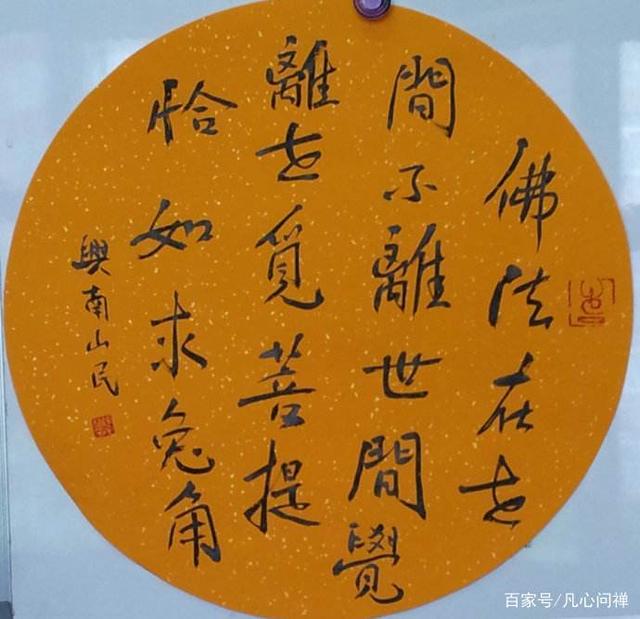 佛法在世
間不離世間覺
離世覓菩提
恰如求兔角
興南山民
百家号/凡心问禅